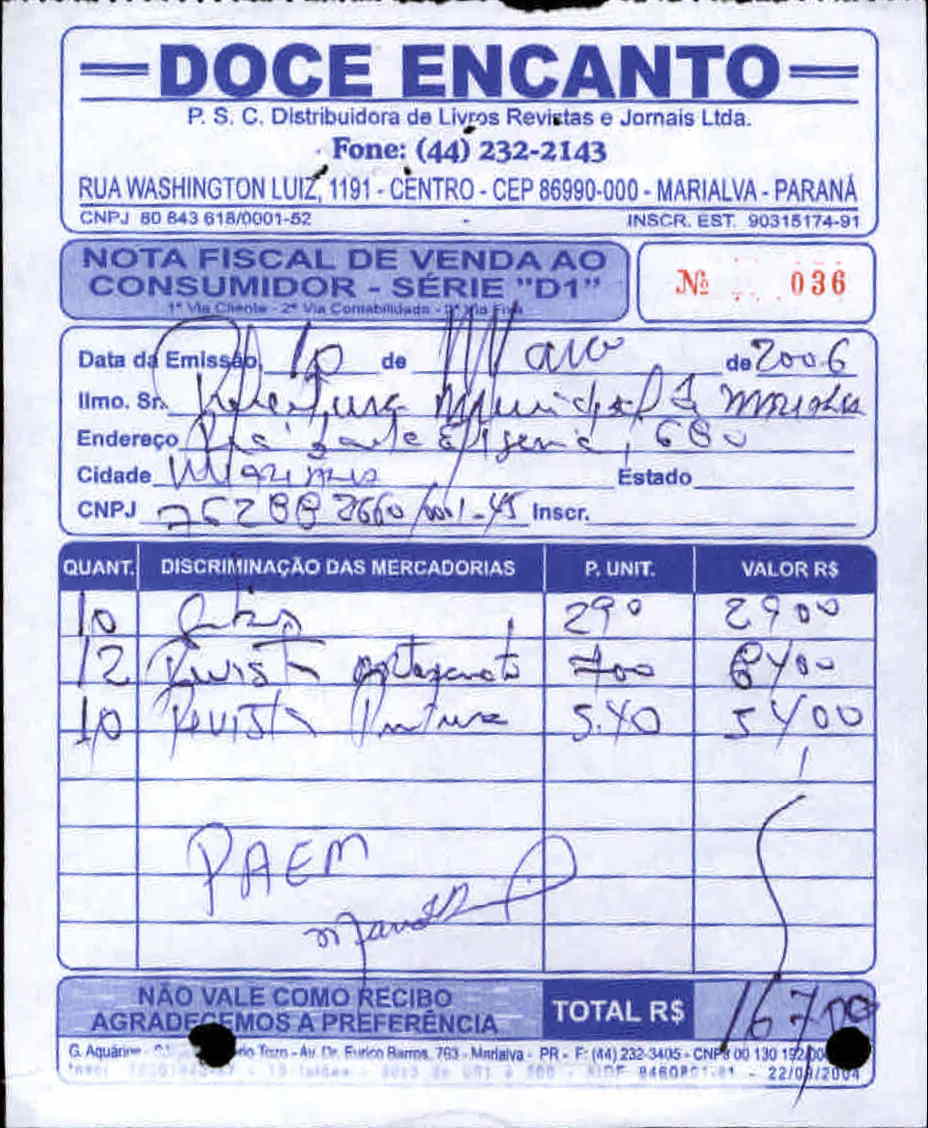 DOCE ENCANTO
P. S. C. Distribuidora de Livros Revistas e Jornais Ltda.
Fone: (44) 232-2143
RUA WASHINGTON LUIZ, 1191 - CENTRO - CEP 86990-000 - MARIALVA - PARANÁ
CNPJ 80 843 618/0001-52 INSCR. EST. 90315174-91
NOTA FISCAL DE VENDA AO
CONSUMIDOR - SÉRIE "D1"
Nº 036
1ª Via Cliente - 2ª Via Contabilidade - 3ª Via Fixa
Data da Emissão 10 de Março de 2006
Ilmo. Sr. Prefeitura Municipal de
Endereço 680
Cidade Estado
CNPJ 762882660/0001-45 Inscr.
QUANT. DISCRIMINAÇÃO DAS MERCADORIAS P. UNIT. VALOR R$
10 290 2900
12 Revista 700 8400
10 Revista Pintura 5.40 5400
PAEM
NÃO VALE COMO RECIBO
AGRADECEMOS A PREFERÊNCIA
TOTAL R$ 16700
G. Aquárius - Av. Dr. Eurico Barros, 763 - Marialva - PR - F: (44) 232-3405 - CNPJ 00 130 192/00